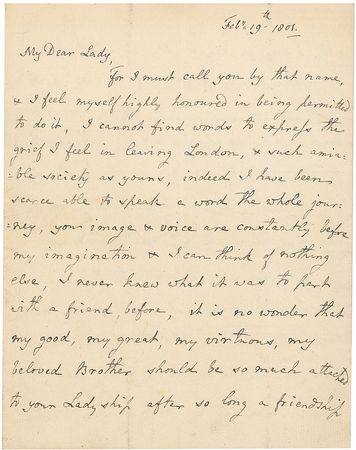 Febr. 19th 1801.
My Dear Lady,
For I must call you by that name,
& I feel myself highly honoured in being permitted
to do it, I cannot find words to express the
grief I feel in leaving London, & such amia=
=ble society as yours, indeed I have been
scarce able to speak a word the whole jour=
=ney, your image & voice are constantly before
my imagination & I can think of nothing
else, I never knew what it was to part
with a friend before, it is no wonder that
my good, my great, my virtuous, my
beloved Brother should be so much attached
to your Ladyship after so long a friendship